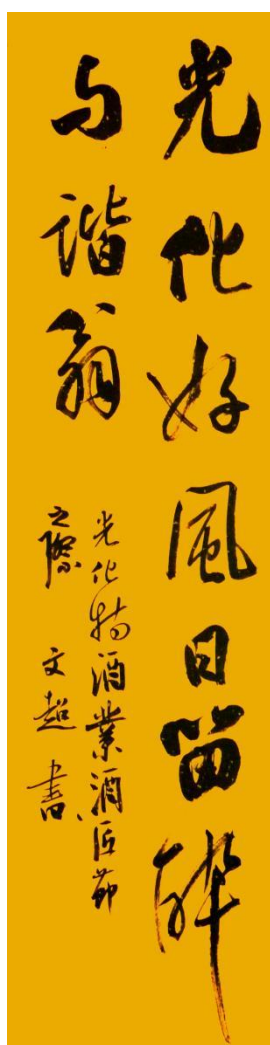 光化好風日留醉
与谐翁
光化特酒業酒匠节
之際 文超書